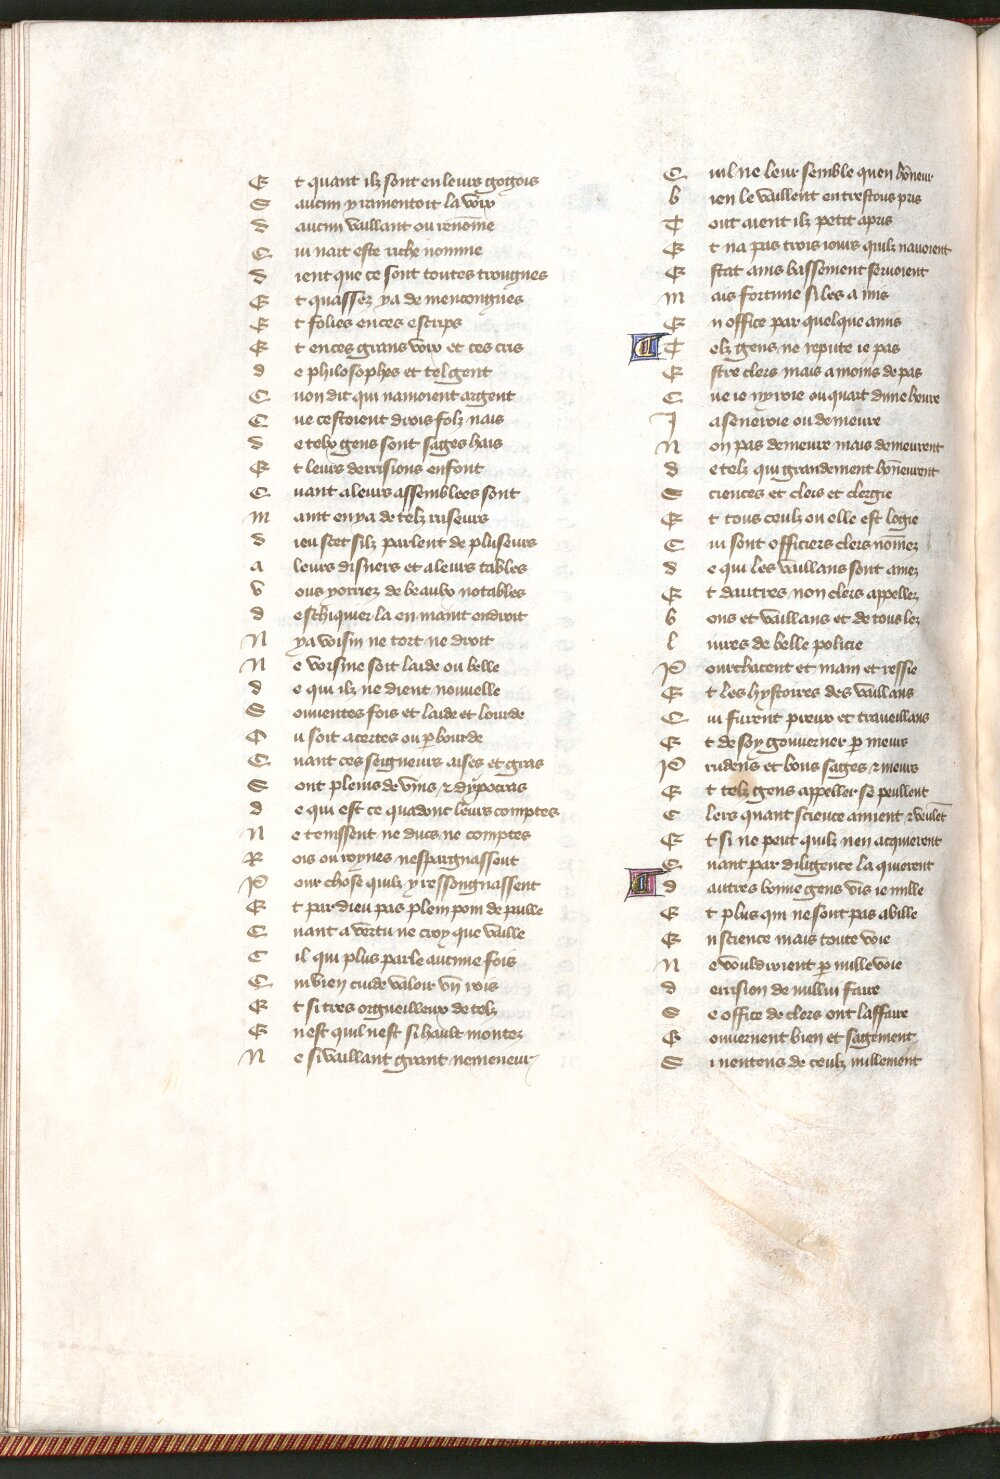 Et quant ilz sont en leurs gogois
S aucun y ramentoit la voix
d aucun vaillant ou renomme
Qui nait este riche nomme
dient que ce sont toutes trougnes
Et quassez ya de mencongnes
Et folies en ces escrips
Et en ces grans voix et ces cris
de philosophes et tel gent
Quon dit qui namoient argent
Que cestoient drois folz nais
de telx gens sont sages hais
Et leurs derrisions en font
Quant a leurs assemblees sont
maint en ya de telz ruseurs
dieu scet silz parlent de pluseurs
a leurs disners et a leurs tables
vous y orriez de beaulx notables
deschiquier la en maint endroit
Ny a voisin ne tort ne droit
Ne voisine soit laide ou belle
de qui ilz ne dient nouvelle
Souventes fois et laide et lourde
Ou soit acertes ou p bourde
Quant ces seigneurs aises et gras
Sont pleins de vins & dypocras
de qui est ce quadont leurs comptes
Ne tenissent ne ducs ne comptes
Rois ou roynes nespargnassent
Pour chose quilz y ressongnassent
Et par dieu pas plein pom de prulle
Quant a vertu ne croy que vaille
Cil qui plus parle aucune fois
Qui bien cuide valoir un rois
Et si tres orgueilleux de telz
En est quil nest si hault montez
Ne si vaillant grant ne meneur
Quil ne leur semble quen honneur
bien le vaillent en trestous pris
Tout aient ilz petit apris
Et na pas trois iours quilz navoient
Estat ains bassement servoient
mais fortune si les a mis
En office par quelque amis
Telz gens ne repute ie pas
Estre clers mais a moins de pas
Que ie nyroie ou quart dune heure
Iaseneroie ou demeure
Non pas demeure mais demeurent
de telz qui grandement honneurent
Sciences et clers et clergie
Et tous ceulz ou elle est logie
Qui sont officiers clers nommez
de qui les vaillans sont amez
Et dautres non clers appellez
bons et vaillans et de tous lez
livres de belle policie
Pourchacent et main et ressie
Et les hystoires des vaillans
Qui furent preux et traveillans
Et de soy gouverner p meurs
Prudens et bons sages & meurs
Et telz gens appeller se peullent
Clers quant science aiment & veulent
Et si ne peut quilz nen acquierent
Quant par diligence la quierent
dautres bonne gens vis ie mille
Et plus qui ne sont pas abille
En science mais toute voie
Ne vouldroient p nulle voie
derrision de nullui faire
Se office de clers ont laffaire
Gouvernent bien et sagement
Si nentens de ceulz nullement